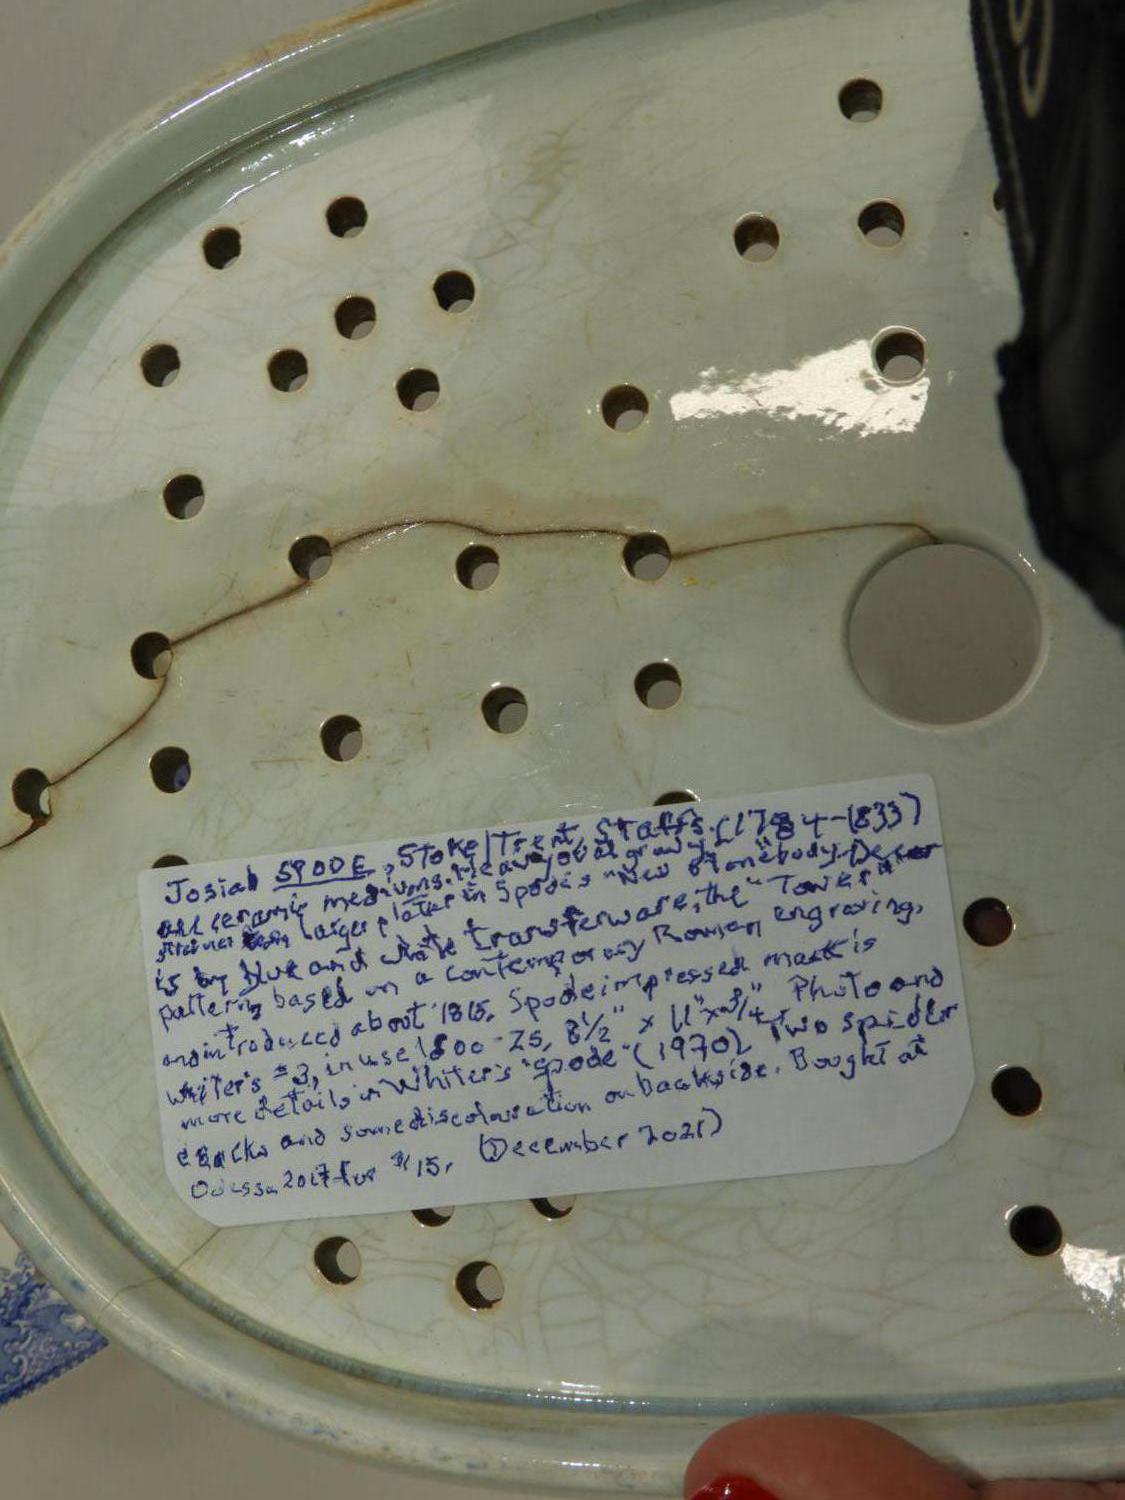 Josiah SPODE, Stoke/Trent, Staffs. (1784-1833)
all ceramic mediums. Meat, oval gravy
strainer larger platter in Spode's "New Stone" body. Decor
is by blue and white transferware, the "Tower"
pattern, based on a contemporary Roman engraving,
and introduced about 1815. Spode impressed mark is
Whiter's #3, in use 1800-25, 8½" x 11" x ¾". Photo and
more details in Whiter's "Spode" (1970). Two spider
cracks and some discolouration on backside. Bought at
Odessa 2017 for $15. (December 2021)